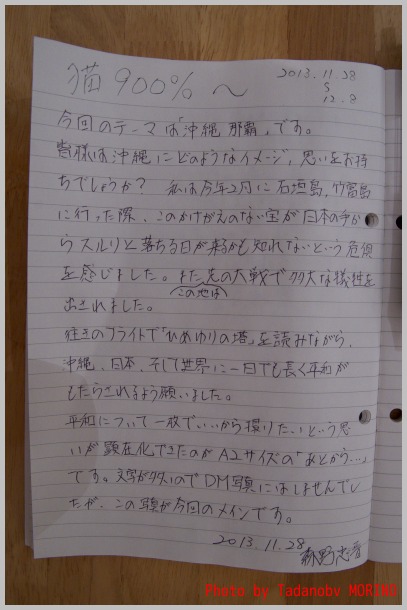 猫900%~
2013.11.28
S
12.8
今回のテーマは「沖縄 那覇」です。
皆様は沖縄にどのようなイメージ,思いをお持
ちでしょうか? 私は今年2月に石垣島,竹富島
に行った際、このかけがえのない宝が日本の手か
らスルリと落ちる日が来るかも知れないという危惧
を感じました。また先の大戦で多大な犠牲を
この地は
出されました。
往きのフライトで「ひめゆりの塔」を読みながら、
沖縄、日本、そして世界に一日でも長く平和が
もたらされるよう願いました。
平和について一枚でいいから撮りたいという思
いが顕在化できたのがA2サイズの「あとがら…」
です。文字が多いのでDM写真にはしませんでし
たが、この写真が今回のメインです。
2013.11.28
森野忠晋
Photo by Tadanobv MORINO